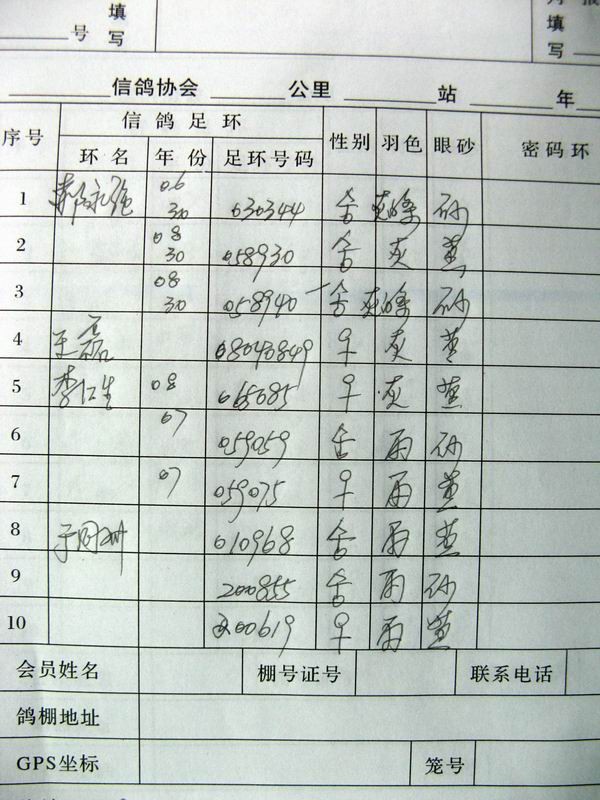 填
号 写
填
写
信鸽协会 公里 站 年
序号 信鸽足环 性别 羽色 眼砂 密码环
环名 年份 足环号码
1 06 30 030344 灰 砂
2 08 30 058930 灰 黄
3 08 30 058940 灰 砂
4 王磊 08040849 ♀ 灰 黄
5 李仁生 08 065085 ♀ 灰 黄
6 07 059059 雨 砂
7 07 059075 ♀ 雨 黄
8 010968 雨 黄
9 200855 雨 砂
10 200619 ♀ 雨 黄
会员姓名 棚号证号 联系电话
鸽棚地址
GPS坐标 笼号